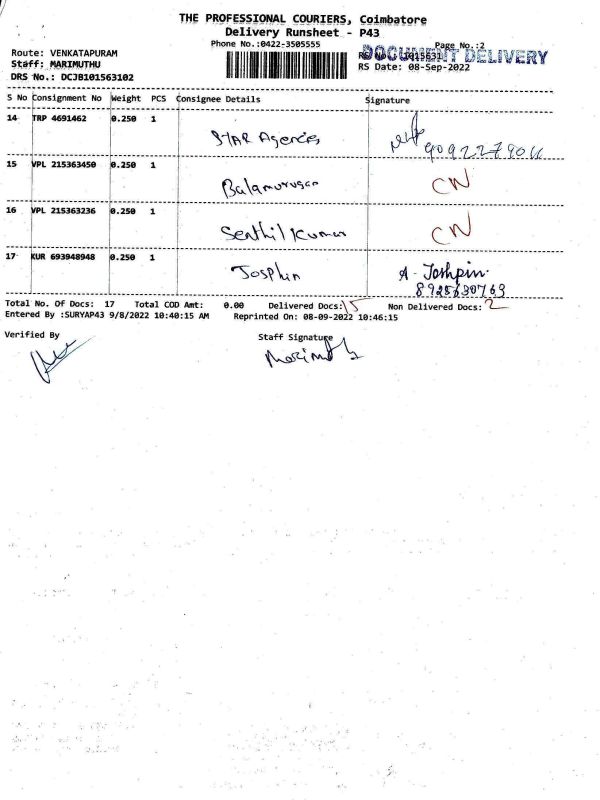 THE PROFESSIONAL COURIERS, Coimbatore
Delivery Runsheet - P43
Phone No.:0422-3505555
Page No.:2
DOCUMENT DELIVERY
Route: VENKATAPURAM
Staff: MARIMUTHU
RS Date: 08-Sep-2022
DRS No.: DCJB101563102
S No Consignment No Weight PCS Consignee Details Signature
14 TRP 4691462 0.250 1 STAR Agencies
15 VPL 215363450 0.250 1 Balamurugan CN
16 VPL 215363236 0.250 1 Senthil Kumar CN
17 KUR 693948948 0.250 1 Josphin A. Joshpin
8925630763
Total No. Of Docs: 17 Total COD Amt: 0.00 Delivered Docs: 15 Non Delivered Docs: 2
Entered By :SURYAP43 9/8/2022 10:40:15 AM Reprinted On: 08-09-2022 10:46:15
Verified By Staff Signature